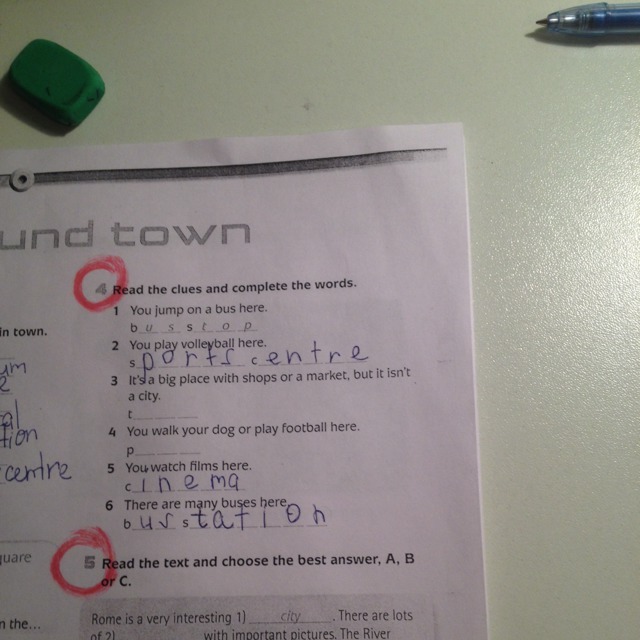 und town
4 Read the clues and complete the words.
1 You jump on a bus here.
bus stop
in town.
2 You play volleyball here.
sports centre
um
3 It's a big place with shops or a market, but it isn't
e
a city.
t
al
4 You walk your dog or play football here.
tion
p
5 You watch films here.
centre
cinema
6 There are many buses here.
bus station
quare
5 Read the text and choose the best answer, A, B
or C.
n the...
Rome is a very interesting 1) city . There are lots
of 2) with important pictures. The River